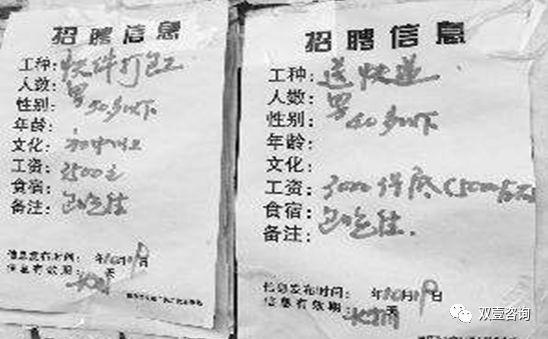 招聘信息
工种：快件打包工
人数：
性别：男 40岁以下
年龄：
文化：初中以上
工资：2500元
食宿：包吃住
备注：
信息发布时间：  年10月19日
信息有效期：长期 天
招聘信息
工种：送快递
人数：
性别：男
年龄：40岁以下
文化：
工资：3000保底(5000左右)
食宿：包吃住
备注：
信息发布时间：  年10月19日
信息有效期：长期 天
双壹咨询